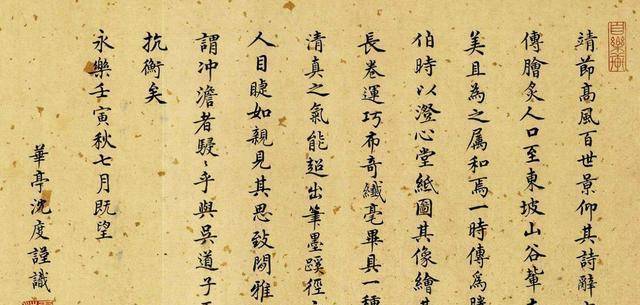 靖節高風百世景仰其詩辭
傳膾炙人口至東坡山谷輩
美且為之属和焉一時傳為勝
伯時以澄心堂紙圖其像繪其
長卷運巧布奇纖毫畢具一種
清真之氣能超出筆墨蹊徑之
人目睫如親見其思致閒雅
謂沖澹者駸〻乎與吳道子
抗衡矣
永樂壬寅秋七月既望
華亭沈度謹識
自樂